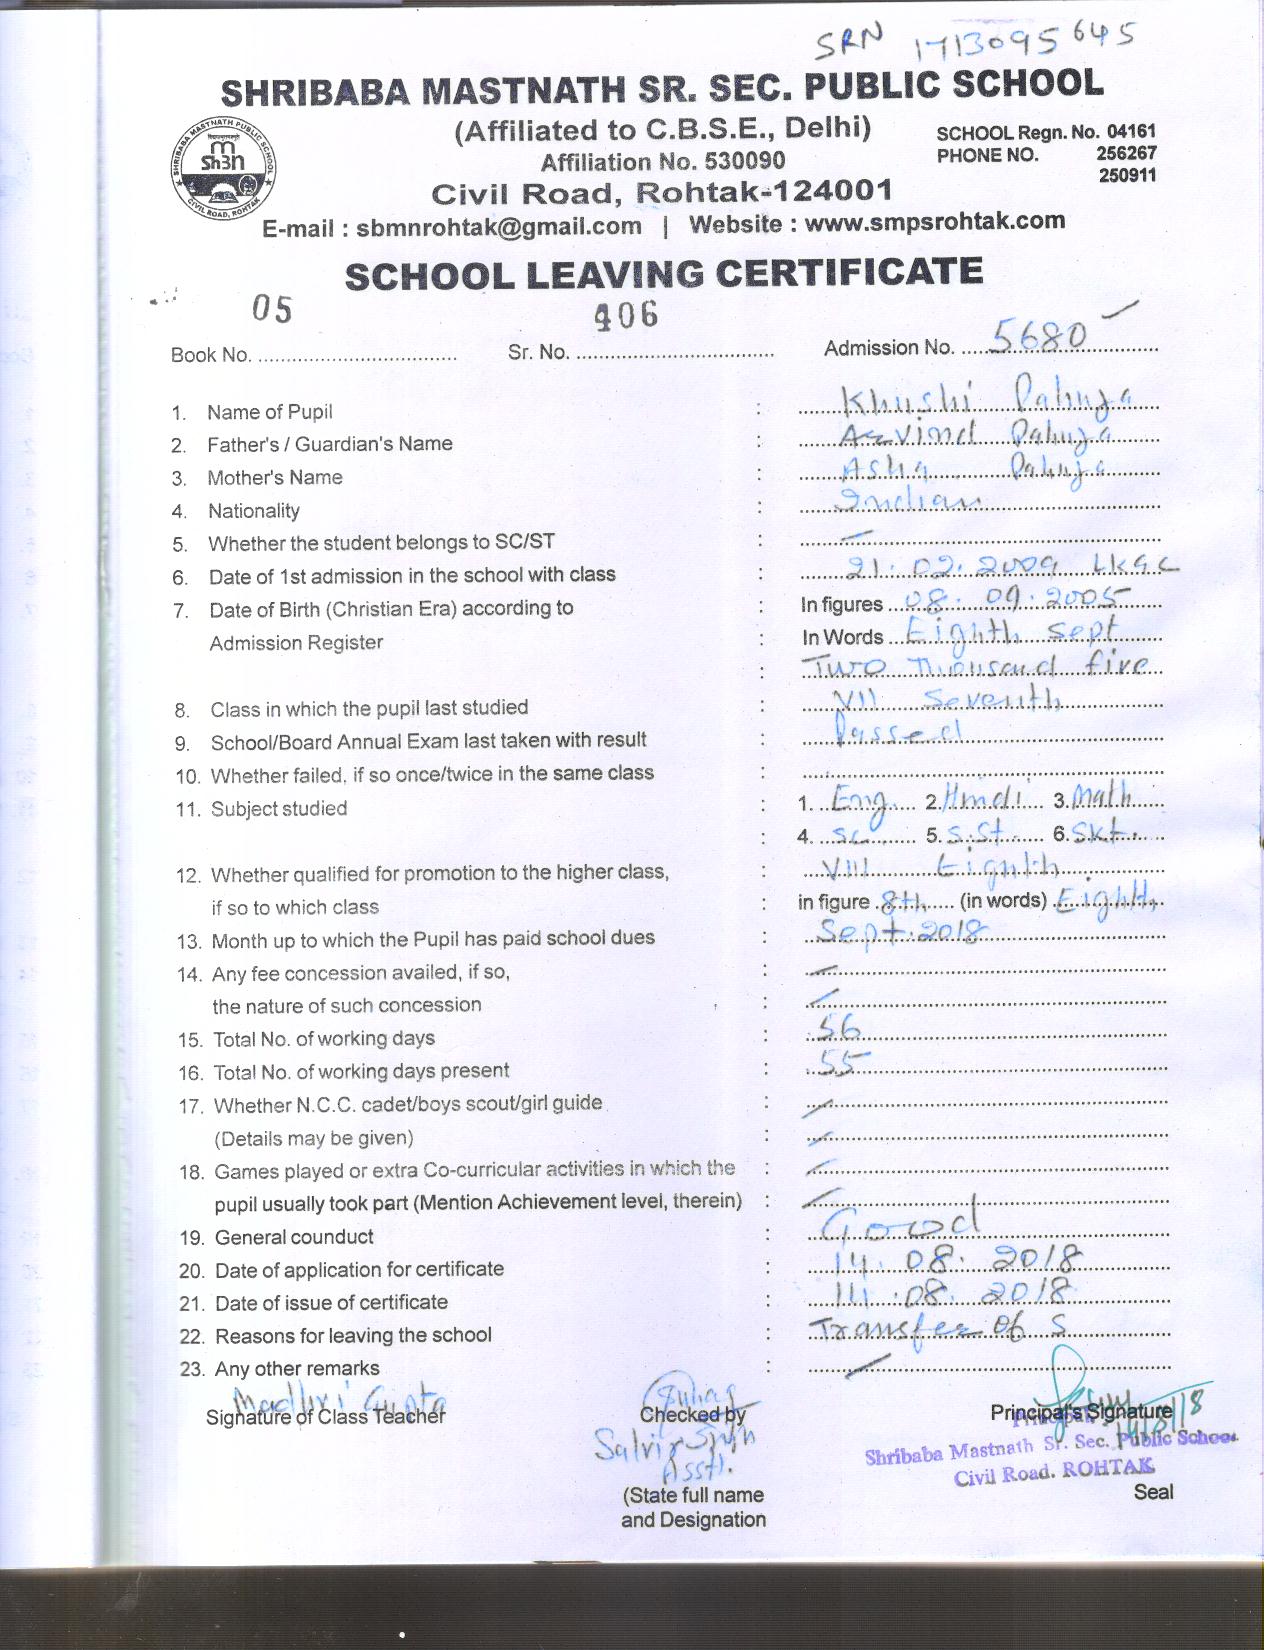 SRN 1713095645
SHRIBABA MASTNATH SR. SEC. PUBLIC SCHOOL
(Affiliated to C.B.S.E., Delhi)
SCHOOL Regn. No. 04161
Affiliation No. 530090
PHONE NO. 256267
250911
Civil Road, Rohtak-124001
E-mail : sbmnrohtak@gmail.com | Website : www.smpsrohtak.com
SHRIBABA MASTNATH PUBLIC SCHOOL
Sh3n
CIVIL ROAD, ROHTAK
SCHOOL LEAVING CERTIFICATE
Book No. 05 Sr. No. 406 Admission No. 5680
1. Name of Pupil : Khushi Pahuja
2. Father's / Guardian's Name : Arvind Pahuja
3. Mother's Name : Asha Pahuja
4. Nationality : Indian
5. Whether the student belongs to SC/ST : –
6. Date of 1st admission in the school with class : 21.02.2009 LKG C
7. Date of Birth (Christian Era) according to : In figures 08.09.2005
Admission Register : In Words Eighth Sept
: Two Thousand five
8. Class in which the pupil last studied : VII Seventh
9. School/Board Annual Exam last taken with result : Passed
10. Whether failed, if so once/twice in the same class :
11. Subject studied : 1. Eng. 2. Hindi 3. Math
: 4. Sc 5. S.St. 6. Skt.
12. Whether qualified for promotion to the higher class, : VIII Eighth
if so to which class : in figure 8th (in words) Eighth
13. Month up to which the Pupil has paid school dues : Sept. 2018
14. Any fee concession availed, if so, : –
the nature of such concession : –
15. Total No. of working days : 56
16. Total No. of working days present : 55
17. Whether N.C.C. cadet/boys scout/girl guide : –
(Details may be given) : –
18. Games played or extra Co-curricular activities in which the : –
pupil usually took part (Mention Achievement level, therein) : –
19. General counduct : Good
20. Date of application for certificate : 14.08.2018
21. Date of issue of certificate : 14.08.2018
22. Reasons for leaving the school : Transfer of S
23. Any other remarks : –
Madhvi Gupta
Signature of Class Teacher Checked by Principal's Signature
Asstt.
Principal
Shribaba Mastnath Sr. Sec. Public School
Civil Road. ROHTAK
(State full name Seal
and Designation